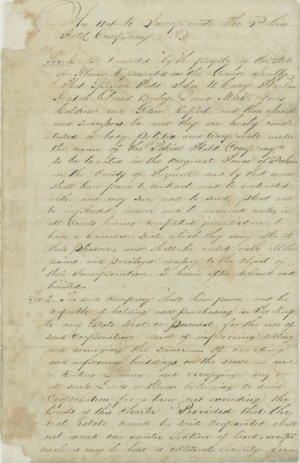 An Act to Incorporate the Pekin
Hotel Company
Sec 1 Be it enacted by the people of the State
of Illinois represented in the General Assembly
That Spencer Field John W Casey
David Bailey and
and their associates
and Successors be and they are hereby consti-
tuted a body Politic and Corporate under
the name of the "Pekin Hotel Company"
to be located in the original Town of Pekin
in the County of Tazewell and by that name
shall have power to contract and be contracted
with, may sue, and be sued, plead and
be impleaded, answer and be answered unto, in
all Courts having competent jurisdiction, to
have a common Seal, which they may alter at
their pleasure, and shall be vested with all the
powers and privileges necessary to the object of
their Incorporation as herein after defined and
limited.
Sec 2 The said Company shall have power and be
capable of holding and purchasing in Fee Simple
to any Estate Real or personal, for the use of
said Corporation and of improving, selling
and conveying the same Of erecting
and improving buildings on the same and
of leasing and carrying on
all such Lands or Houses belonging to said
Corporation for a term not exceeding the
limits of this Charter Provided that the
real Estate owned by said Corporation shall
not exceed one quarter Section of land, except
such as may be held as collateral Security for